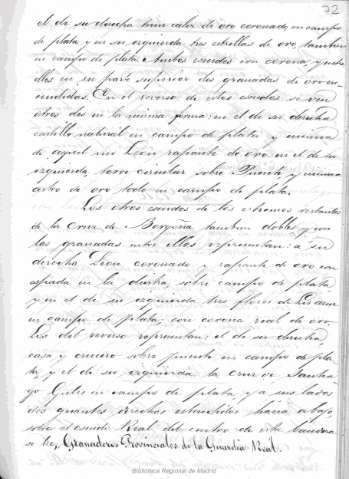 72
el de su derecha tiene calix de oro coronado, en campo
de plata y en su izquierda tres estrellas de oro, tambien
en campo de plata. Ambos escudos con corona, y entre
ellos en su parte superior dos granadas de oro en-
cendidas. En el reverso de estos escudos se ven
otros dos en la misma forma: en el de su derecha
castillo natural en campo de plata y encima
de aquel un Leon rapante de oro en el de su
izquierda, torre circular sobre Puente y encima
de oro todo en campo de plata.
Los otros escudos de los estremos restantes
de la Cruz de Borgoña tambien dobles y con
las granadas entre ellos representan: a su
derecha Leon coronado y rapante de oro con
espada en la diestra, sobre campo de plata
y en el de su izquierda tres flores de Lis
en campo de plata, con corona real de oro.
Los del reverso representan: el de su derecha
casa y crucero sobre puente en campo de pla-
ta, y el de su izquierda la cruz de Santia-
go en campo de plata y a sus lados
dos estendidos hacia abajo,
sobre el escudo Real del centro de esta bandera
se lee, Granaderos Provinciales de la Guardia Real.
Biblioteca Regional de Madrid